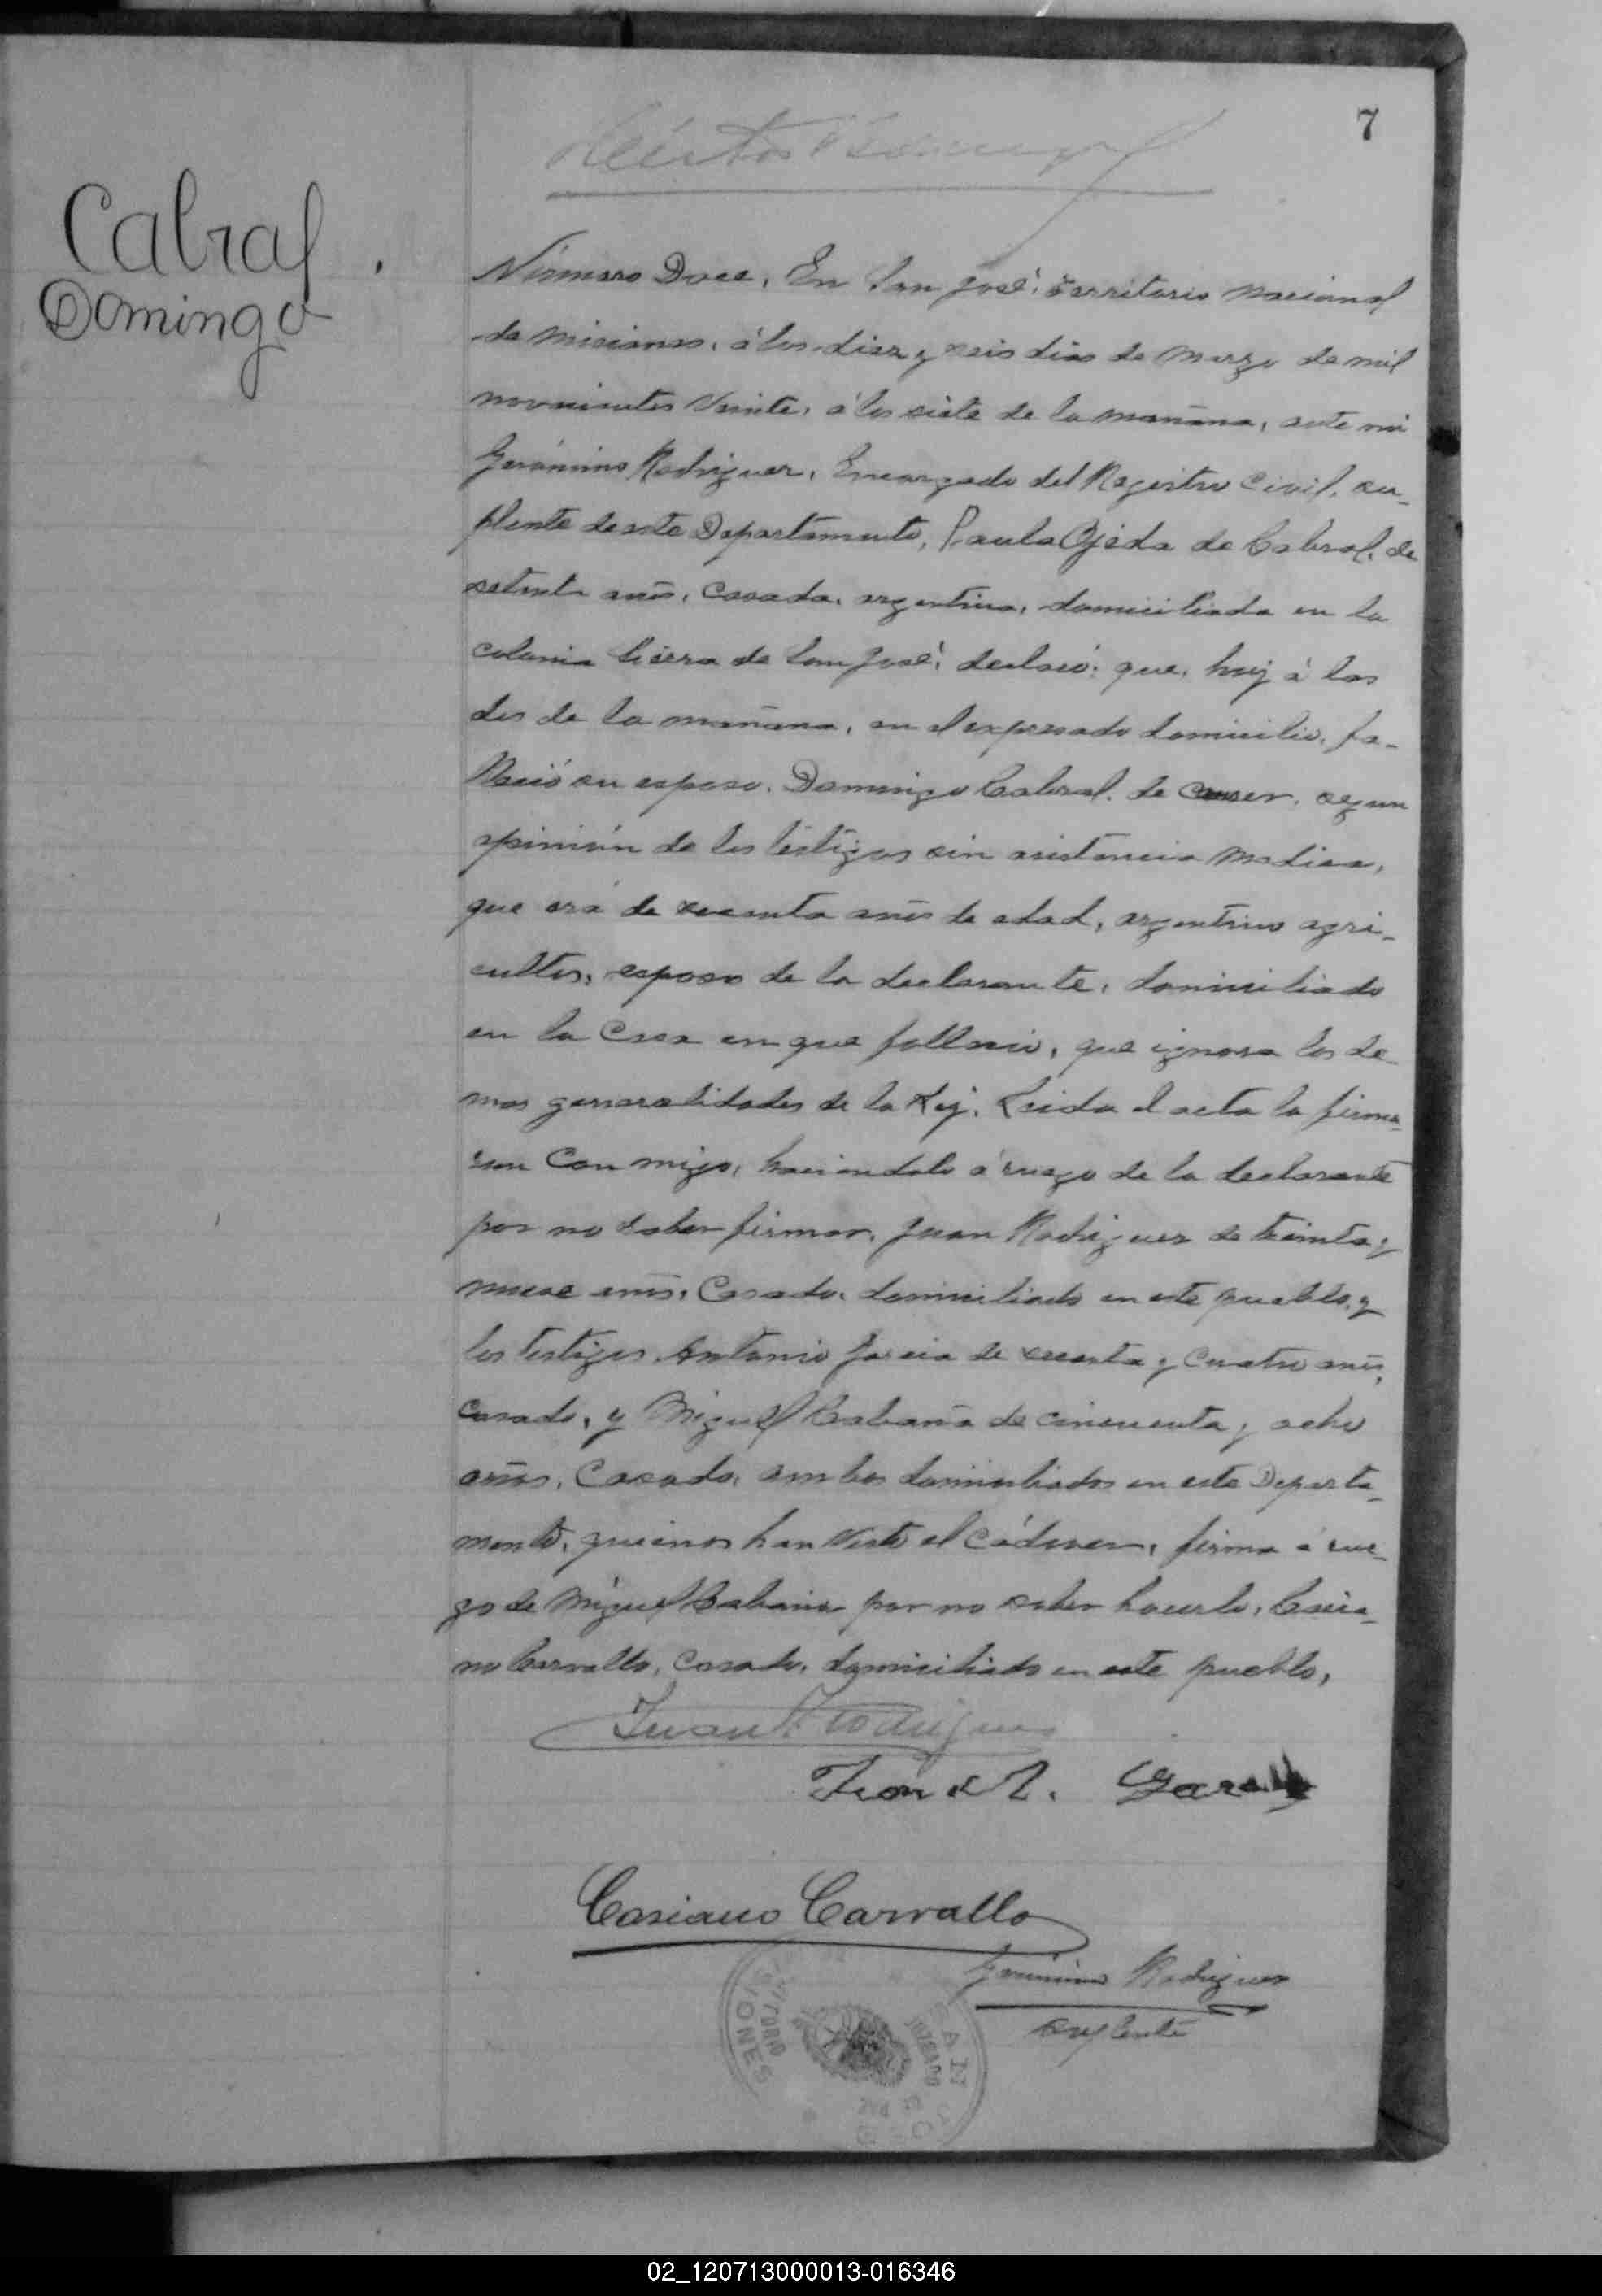 7
Cabral
Domingo
Número Doce. En San José, Territorio Nacional
de Misiones, á los diez y seis dias de Marzo de mil
novecientos Veinte, á las siete de la mañana, ante mi
Gerónimo Rodriguez, Encargado del Registro Civil, su-
plente de este Departamento, Paula Ojeda de Cabral, de
setenta años, Casada, argentina, domiciliada en la
colonia Sierra de San José, declaró: que, hoy á las
dos de la mañana, en el expresado domicilio, fa-
lleció su esposo, Domingo Cabral, de segun
opinión de los testigos sin asistencia Medica,
que erá de años de edad, argentino agri-
cultor, esposo de la declarante, domiciliado
en la Casa en que falleció, que ignora las de-
mas generalidades de la Ley. Leida el acta la firma-
ron Con migo, haciendolo á ruego de la declarante
por no saber firmar, Juan Rodriguez de treinta y
nueve años, Casado, domiciliado en este pueblo, y
los testigos Antonio Garcia de y Cuatro años,
casado, y Miguel Cabaña de cincuenta y ocho
años, Casado, ambos domiciliados en este Departa-
mento, quienes han Visto el Cádaver, firma á rue-
go de Miguel Cabaña por no saber hacerlo, Casia-
no Carvallo, Casado, domiciliado en este pueblo,
Juan Rodriguez
Casiano Carvallo
Gerónimo Rodriguez
suplente
SAN JOSE
JUZGADO DE PAZ
TERRITORIO
MISIONES
02_120713000013-016346